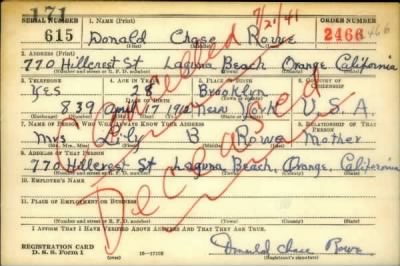 171
SERIAL NUMBER 1. NAME (Print) ORDER NUMBER
615 Donald Chase Rowe 2466
(First) (Middle) (Last)
2. ADDRESS (Print)
770 Hillcrest St Laguna Beach Orange California
(Number and street or R. F. D. number) (Town) (County) (State)
3. TELEPHONE 4. AGE IN YEARS 5. PLACE OF BIRTH 6. COUNTRY OF CITIZENSHIP
Yes 28 Brooklyn
DATE OF BIRTH (Town or county)
839 April 17 1912 New York U.S.A.
7. NAME OF PERSON WHO WILL ALWAYS KNOW YOUR ADDRESS 8. RELATIONSHIP OF THAT PERSON
Mrs B Rowe Mother
(Mr., Mrs., Miss) (First) (Middle) (Last)
9. ADDRESS OF THAT PERSON
770 Hillcrest St Laguna Beach, Orange, California
(Number and street or R. F. D. number) (Town) (County) (State)
10. EMPLOYER'S NAME
11. PLACE OF EMPLOYMENT OR BUSINESS
(Number and street or R. F. D. number) (Town) (County) (State)
I AFFIRM THAT I HAVE VERIFIED ABOVE ANSWERS AND THAT THEY ARE TRUE.
REGISTRATION CARD
D. S. S. Form 1 16—17105 Donald Chase Rowe
(Registrant's signature)
Cancelled 7/21/41
Deceased